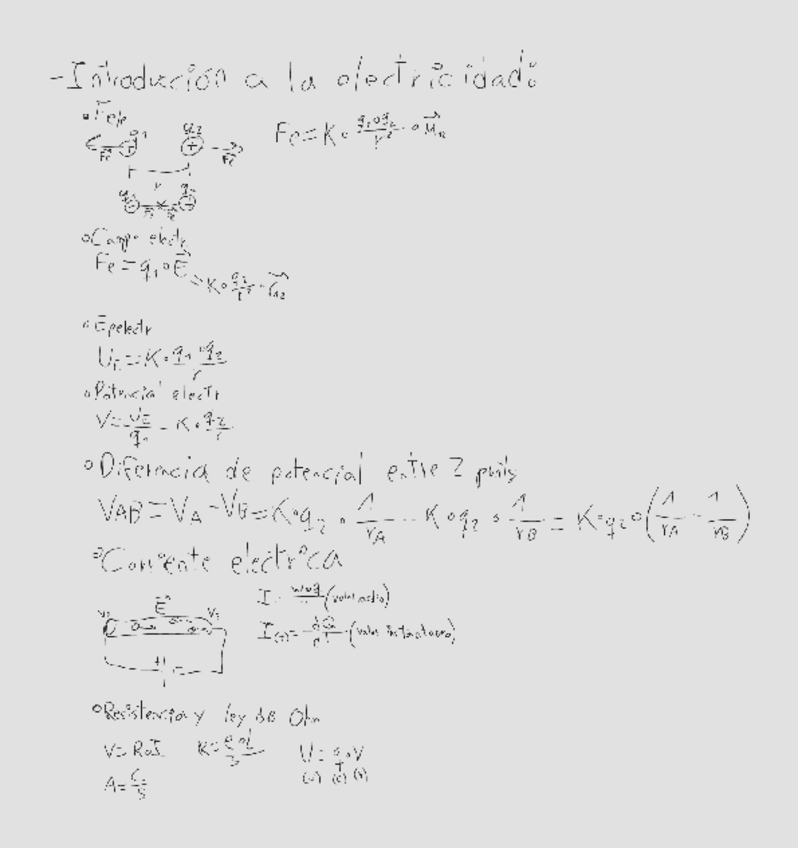 -Introducción a la electricidad:
∘ Fele
q1 q2 Fe=K∘ q1∘q2/r² ∘ u⃗r
Fe Fe
r
∘Campo electr
Fe=q1∘E⃗ =K∘ q2/r² ∘
∘Epelectr
UE=K∘q1∘q2/r
∘Potencial electr
V=UE/q1=K∘q2/r
∘Diferencia de potencial entre 2 punts
VAB=VA-VB=K∘q2∘1/rA - K∘q2∘1/rB = K∘q2∘(1/rA - 1/rB)
∘Corriente electrica
E⃗ I= (valor medio)
I(t)=dQ/dt (valor instantaneo)
∘Resistencia y ley de Ohm
V=R∘I R=ρ∘l/S U=q∘V
A=C/s (J) (C) (V)